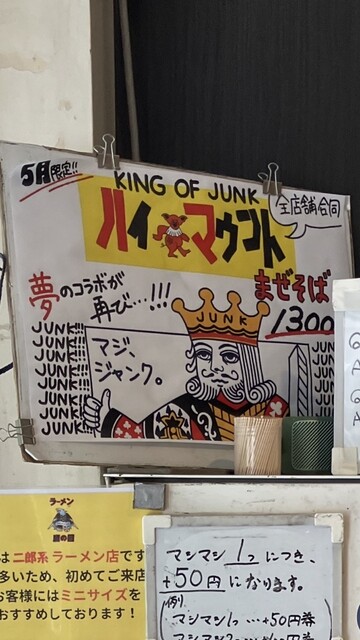 5月限定!!
KING OF JUNK
全店舗合同
ハイ・マウント
まぜそば
1300
夢のコラボが
再び…!!!
JUNK
マジ、
ジャンク。
JUNK
JUNK
JUNK
JUNK
JUNK
JUNK
JUNK
JUNK
ラーメン
は二郎系ラーメン店です
多いため、初めてご来店
お客様にはミニサイズを
おすすめしております!
マシマシ1つにつき、
+50円になります。
例)
マシマシ1つ…+50円券